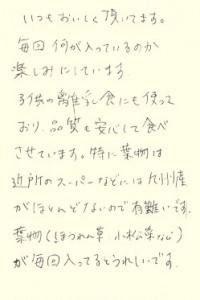 いつもおいしく頂いてます。
毎回何が入っているのか
楽しみにしています。
子供の離乳食にも使って
おり、品質も安心して食べ
させています。特に葉物は
近所のスーパーなどには九州産
がほとんどないので有難いです。
葉物(ほうれん草 小松菜など)
が毎回入ってるとうれしいです。